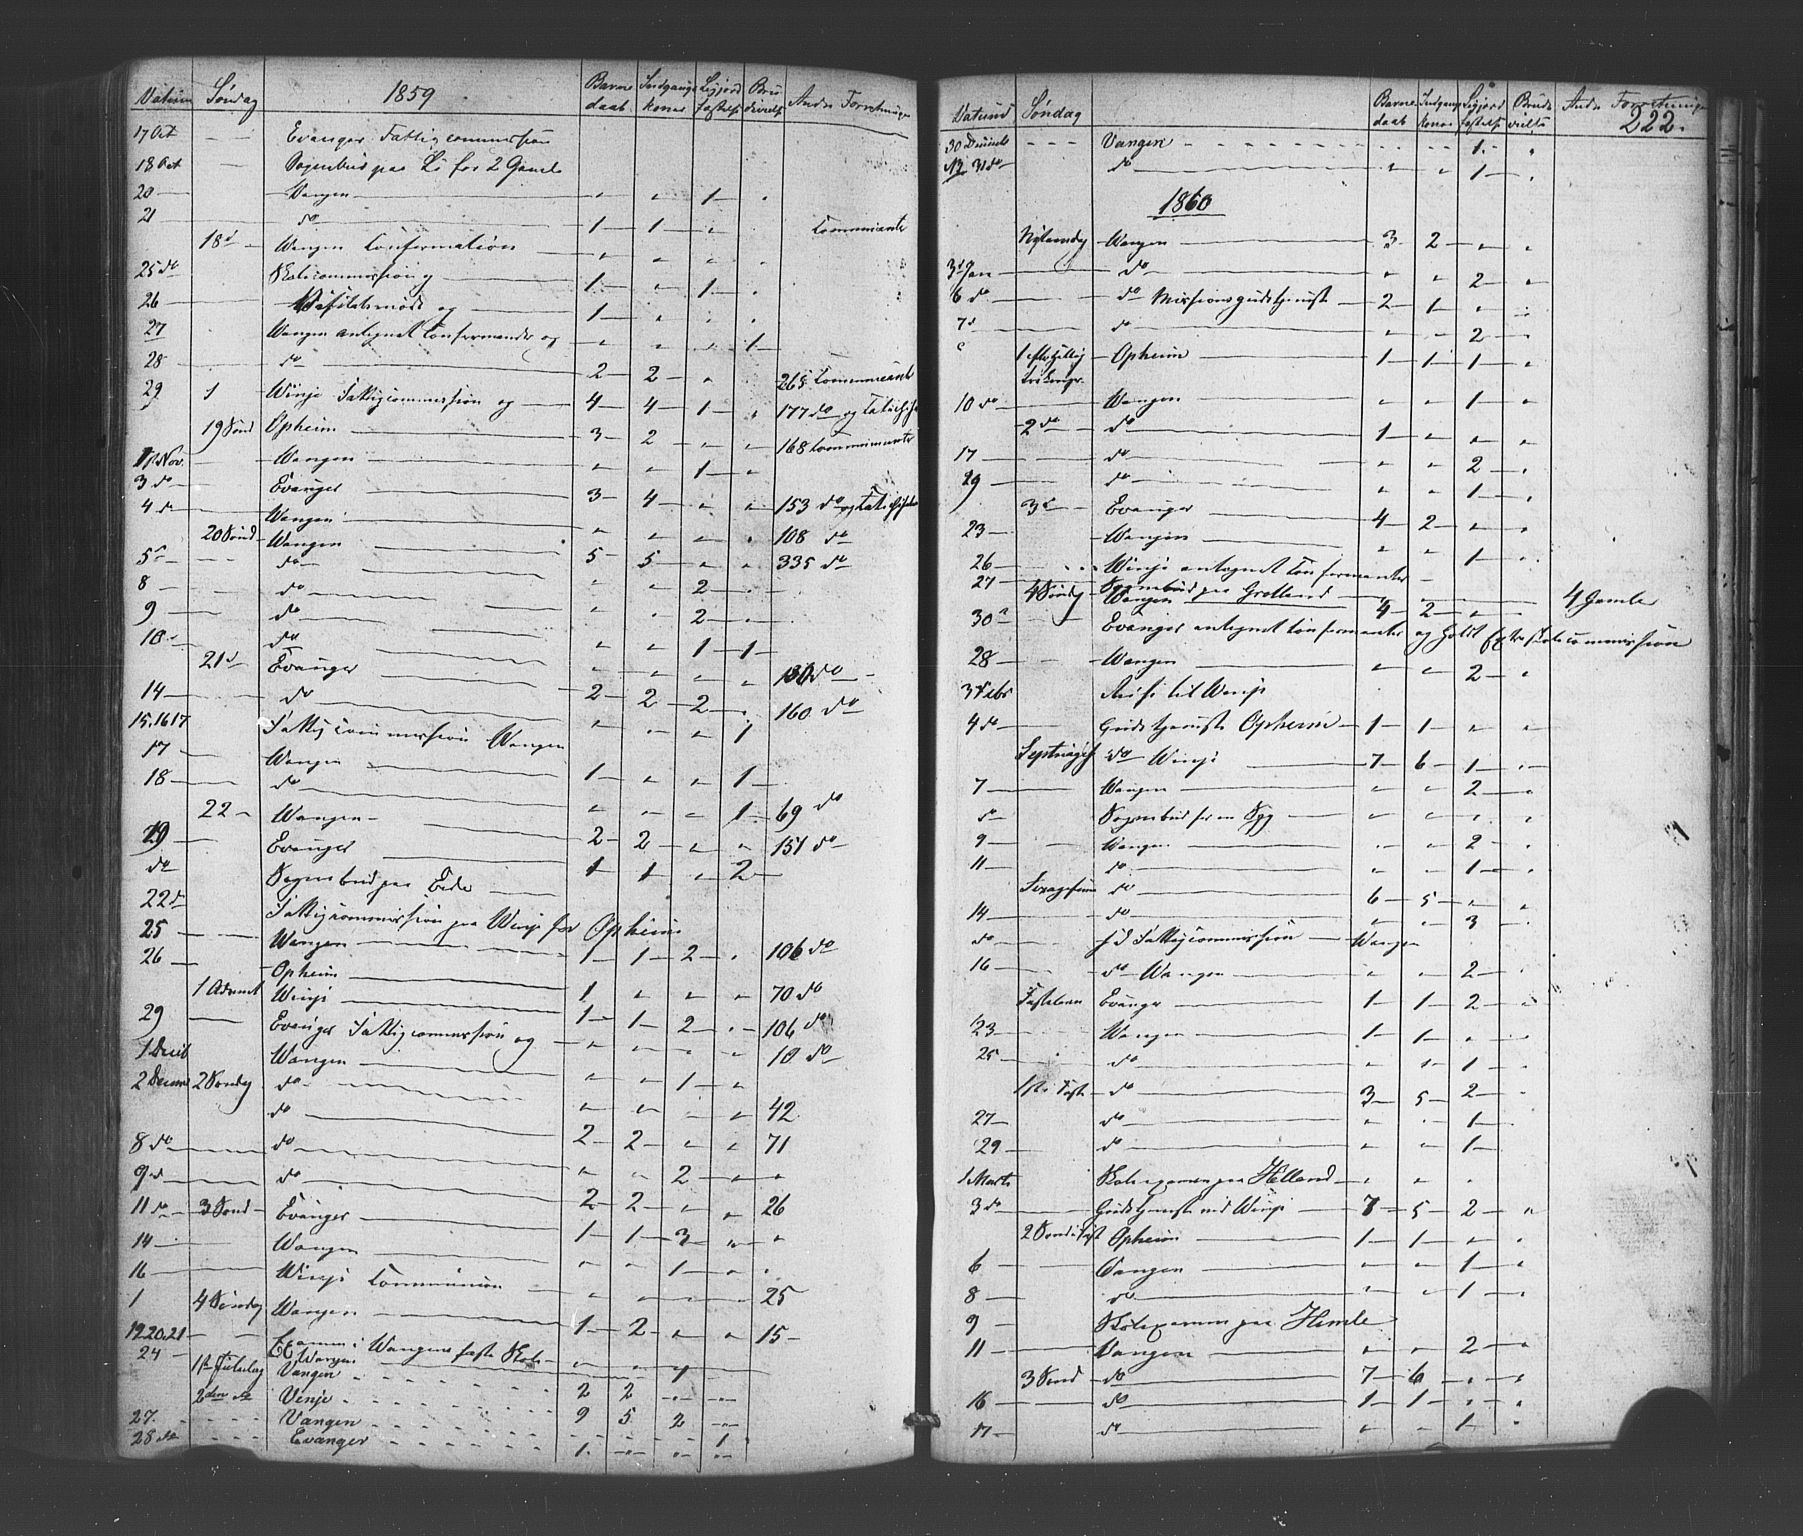 Datum Søndag 1859 Barne daab Indgangs koner Ligjord fæstelse Bru devielse Andre Forretninger
17 Oct — Evanger Fattigcommission
18 Oct — Sognebud paa for 2 Gamle
20 — Vangen — " " 1 "
21 — do — 1 1 " Communicanter
18d — Wangen Confermation — " " " "
25 do Skolecommission og — 1 " 1
26 — og — 1 " "
27 Wangen antegnet Confermander og — " " " 1
28 — do — 2 2 " 265 Communicant
29 1 Winje Fattigcommission og — 4 4 1 " 177 do og
19 Sønd Opheim — 3 2 " " 168 Communicanter
1 Nov. — Wangen — " " 1 "
3 do — Evanger — 3 4 " " 153 do og
4 d — Wangen — " " " " 108 do
20 Sønd Wangen — 5 5 " " 335 do
5 — do — " " 2
8 — do — " " 2 "
9 — do — " " 1 1
10 — do — " " " "
21d Evanger — 2 2 2 " do
14 — do — " " " 1 160 do
15.16 17 Fattigcommission Wangen
17 — Wangen — 1 " " 1
18 — do — " " " 1
22 — Wangen — 2 2 " " 69 do
20 — Evanger — 1 1 " 2 151 do
do — Sognebud paa Eide —
22 d Fattigcommission paa Winje for Opheim
25 — Wangen — 1 1 2 " 106 do
26 — Opheim — 1 " " " 70 do
1 Advent Winje — 1 1 2 " 106 do
29 — Evanger Fattigcommission og — " " " " 10 do
1 Decb Wangen — " " 1 "
2 Decem 2 Søndag do — " " " " 42
do — 2 2 " " 71
8 do — do — " " 2 "
9 d — do — 2 2 " " 26
11 do 3 Sønd — Evanger — 1 1 3 " "
14 — Wangen — " " 1 "
16 — Winje Communion — " " " " 25
1 4 Søndag Wangen — 1 2 " " 15
19 20.21 — Examen i Wangens faste Skole
24 — Wangen " " "
1ste Juledag Vangen 2 2 " "
2den do Vinje 9 5 2 "
27. Vangen " " " 1
28 do Evanger 1. " " "
Datum Søndag Barne daab Indgangs koner Ligjord fæstelse Brude vielse Andre Forretninger
222.
30 Decemb Vangen 1. "
31 do do " " 1 "
1860
Nytaarsdag — Wangen — 3 2 " "
3 d Jan — do — " " 2 "
6 do — do Missionsgudstjeneste — 2 1 " "
7 d — do — " " 2 "
1 Opheim — 1 1 1 "
10 do — Wangen — " " 1 "
2 do — do — 1 " " "
17 — do — " " 2 "
29 — do — " " 1 "
3d — Evanger — 4 2 " "
23 — Wangen — " " 1 "
26 — Winje antegnet Confermanter —
27 — Sognebud paa Grolland — 4 Gamle
4 Søndg — Wangen — 4 2 " "
30d — Evanger antegnet Confermanter og holdt Extra Skolecommission
28 — Wangen — " " 2 "
3 Febr Reise til Winje
4 do — Gudstjeneste Opheim — 1 1 " "
Septuages do Winje — 7 6 1 "
7 — Wangen — " " 2 "
d — Sognebud for en Syg — " " " "
9 — Wangen — " " 2 "
11 — do — " " 1 "
Sexagesima do — 6 5 " "
14 — do — " " 3 "
do — Fattigcommission — Wangen
16 — do Wangen — " " 2 "
Fastelavn Evanger — 1 1 2 "
23 — Wangen — 1 1 " "
25 — do — " " 1 "
1ste i Faste — do — 3 5 2 "
27 — do — " " 1
29 — do — " " 1 "
1 Marts Skoleexamen paa Helland — " " "
3 do — Gudstjeneste ved Winje — 7 5 2 "
2 Sønd i Fast Opheim — 1 1 " "
6 — Vangen — " " 1 "
8 — do — " " 1 "
9 — Skoleexamen paa Himle
11 — Vangen — " " 2 "
3 Sønd — do — 7 6 " "
16 — do — 1 1 " "
17 — do — " " 1 "